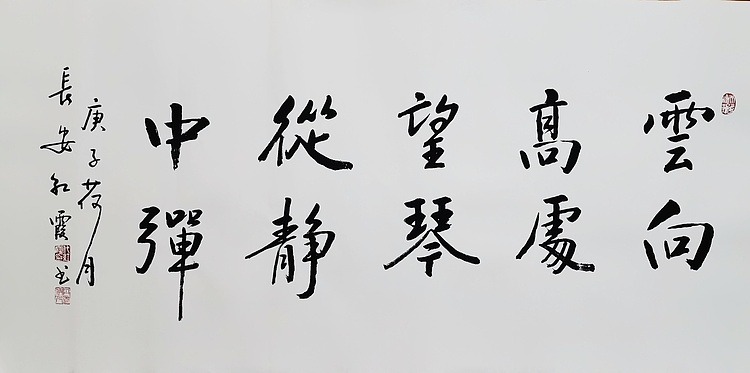 雲向
高處
望琴
從静
中彈
庚子荷月
長安紅霞书